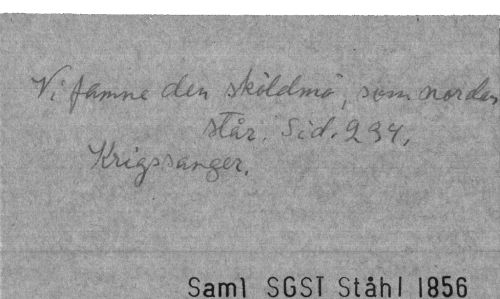 Vi famne den sköldmö, som norden
står. Sid. 234.
Krigssånger.
Saml SGST Ståhl 1856